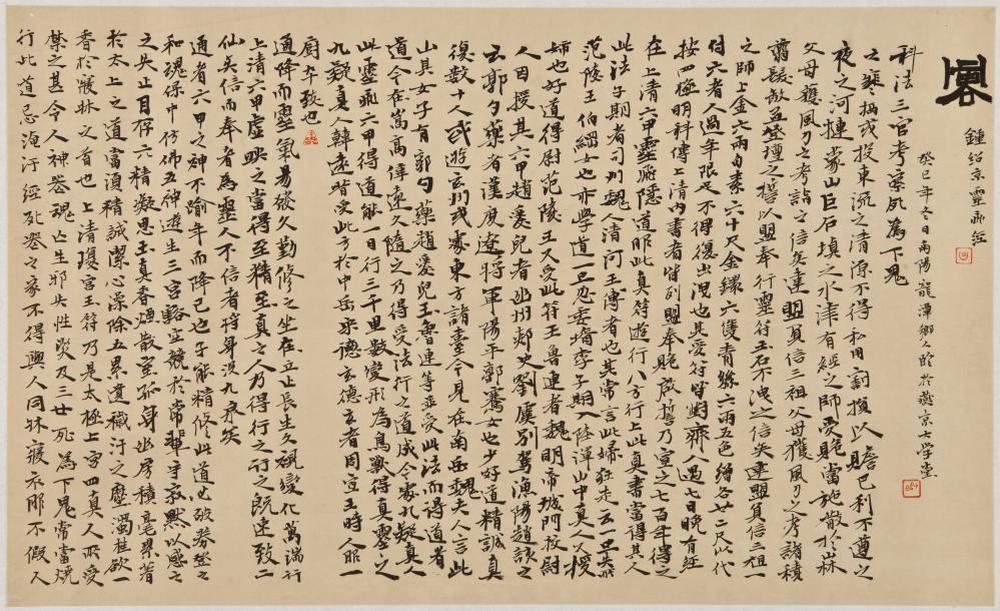 行此道忌淹汙經死喪之家不得與人同床寢衣服不假人
禁之甚令人神喪魂亡生邪失性災及三世死為下鬼常當燒
香於寢床之首也上清瓊宮玉符乃是太極上宮四真人所受
於太上之道當須精誠潔心澡除五累遺穢汙之塵濁杜欲
之失正目存六精凝思玉真香煙散室孤身幽房積毫累著
和魂保中仿佛五神遊生三宮豁空競於常輩守寂默以感之
通者六甲之神不踰年而降已也子能精修此道必破券登之
仙矣信而奉者為靈人不信者將身沒九泉矣
上清六甲虛映之當得至精至真之人乃得行之行之既速致
通降而靈氣易發久勤修之坐在立亡長生久視變化萬端行
廚卒致也
九疑真人韓遠昔受此方於中岳宋德玄德玄者周宣王時人服
此靈飛六甲得道能一日行三千里數變形為鳥獸得真靈之
道今在嵩高偉遠久隨之乃得受法行之道成今處九疑真人
山其女子有郭勺藥趙愛兒王魯連等並受此法而得道者
復數十人或遊玄州或處東方諸臺今見在南岳魏夫人言此
云郭勺藥者漢度遼將軍陽平郭騫女也少好道精誠真
人因授其六甲趙愛兒者幽州刺史劉虞別駕漁陽趙該之
婦也好道得尉范陵王又受此符王魯連者魏明帝城門校尉
范陵王伯綱女也亦學道一旦忽委婿李子期入陸渾山中真人又授
此法子期者司州魏人清河王傅者也其常言此婦狂走云一旦失所
在上清六甲靈飛隱道服此真符遊行八方行上此真書當得其人
按四極明科傳上清內書者皆列盟奉貺啟誓乃宣之七百年得之
付六者人過年限足不得復出洩也其受符皆對齋七日貺有經
之師上金六兩白素六十尺金鐶六雙青絲六兩五色繒各廿二尺以代
翦髮歃血登壇之誓以盟奉行靈符玉名不洩之信矣違盟負信三祖
父母獲風刀之考詣之信矣違盟負信三祖父母獲風刀之考諸積
夜之河搪蒙山巨石填之水津有經之師受貺當施散於山林
之寒栖或投東流之清源不得私用割損以贍己利不遵之
科法三官考察死為下鬼
癸巳年冬日南陽龍潭鄉人於燕京大學堂
鍾紹京靈飛經